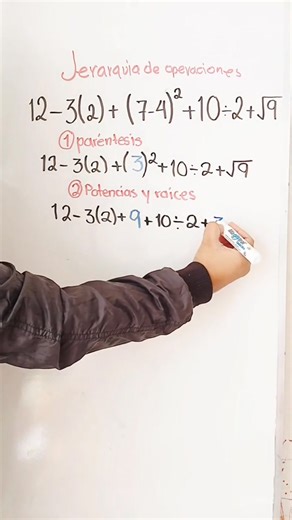 Jerarquia de operaciones
12-3(2)+(7-4)²+10÷2+√9
① paréntesis
12-3(2)+(3)²+10÷2+√9
② Potencias y raices
12-3(2)+9+10÷2+3